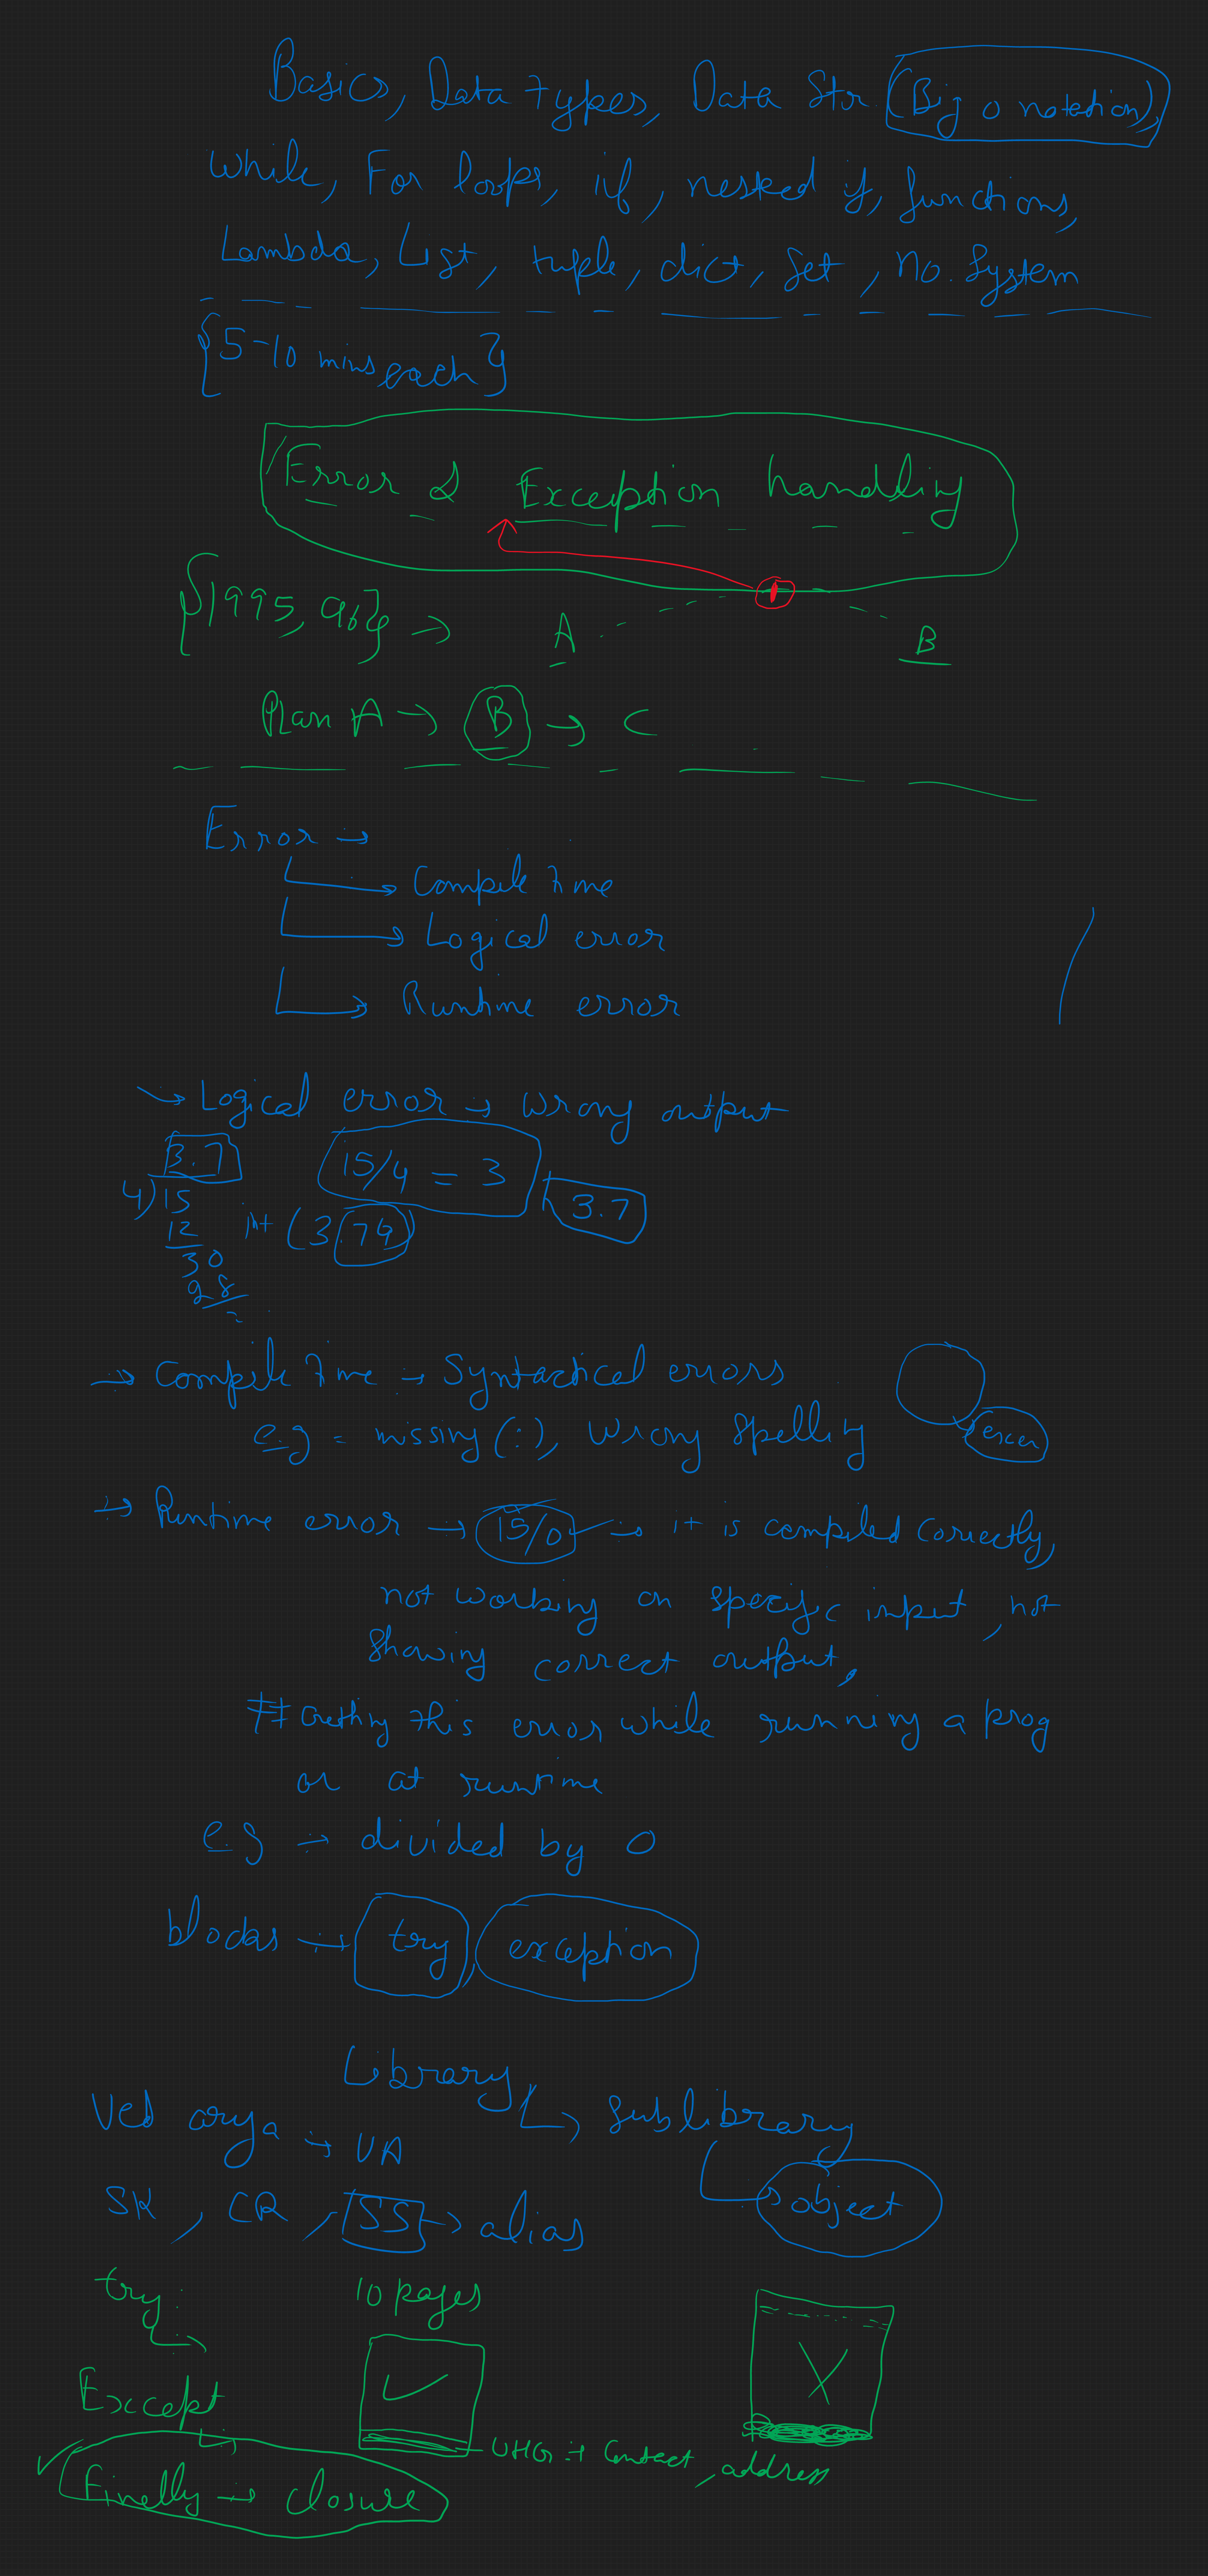 Basics, Data types, Data Str (Big o notation),
while, For loops, if, nested if, functions,
Lambda, List, tuple, dict, Set, No. System
{5-10 mins each}
Error & Exception handling
{1995, 96} → A B
Plan A → B → C
Error →
Compile time
Logical error
Runtime error
→ Logical error → Wrong output
3.7
15/4 = 3
4)15 3.7
12 int (3.74)
30
28
→ Compile time → Syntactical errors
e.g = missing (:), Wrong Spelling
→ Runtime error → 15/0 → it is compiled correctly,
not working on specific input, not
showing correct output,
# Getting this error while running a prog
or at runtime
e.g → divided by 0
blocks → try exception
Library
Ved arya → VA sublibrary
SK, CR, SS → alias object
try: 10 pages
Except
UHG → Contact, address
Finelly → closure